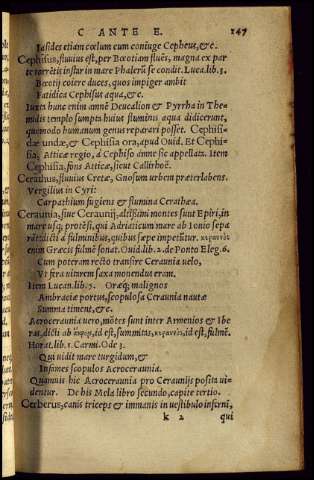 C ANTE E. 147
Iasides etiam cœlum cum coniuge Cepheus, &c.
Cephissus, fluuius est, per Bœotiam fluēs, magna ex par
te torrētis instar in mare Phalerū se condit. Luca.lib.3.
Bœotij coiere duces, quos impiger ambit
Fatidica Cephisus aqua, &c.
Iuxta hunc enim amnē Deucalion & Pyrrha in The-
midis templo sumpta huius fluminis aqua didicerunt,
quomodo humanum genus reparari posset. Cephisi-
dæ undæ, & Cephisia ora, apud Ouid. Et Cephi-
sia, Atticæ regio, à Cephiso amne sic appellata. Item
Cephisia, fons Atticæ, sicut Callirhoë.
Cerathus, fluuius Cretæ, Gnosum urbem præterlabens.
Vergilius in Cyri:
Carpathium fugiens & flumina Cerathea.
Ceraunia, siue Ceraunij, altissimi montes sunt Epiri, in
mare usq; protēsi, qui Adriaticum mare ab Ionio sepa
rāt: dicti à fulminibus, quibus sæpe impetitur. κεραυνὸς
enim Græcis fulmē sonat. Ouid.lib.2.de Ponto Eleg.6.
Cum poteram recto transire Ceraunia uelo,
Vt fera uitarem saxa monendus eram.
Item Lucan.lib.5. Oræq; malignos
Ambraciæ portus, scopulosa Ceraunia nautæ
Summa timent, &c.
Acroceraunia uero, mōtes sunt inter Armenios & Ibe
ros, dicti ab ἄκρος, id est, summitas, κεραυνὸς, id est, fulmē.
Horat.lib.1.Carmi.Ode 3.
Qui uidit mare turgidum, &
Infames scopulos Acroceraunia.
Quamuis hic Acroceraunia pro Ceraunijs posita ui-
dentur. De his Mela libro secundo, capite tertio.
Cerberus, canis triceps & immanis in uestibulo inferni,
k 2 qui